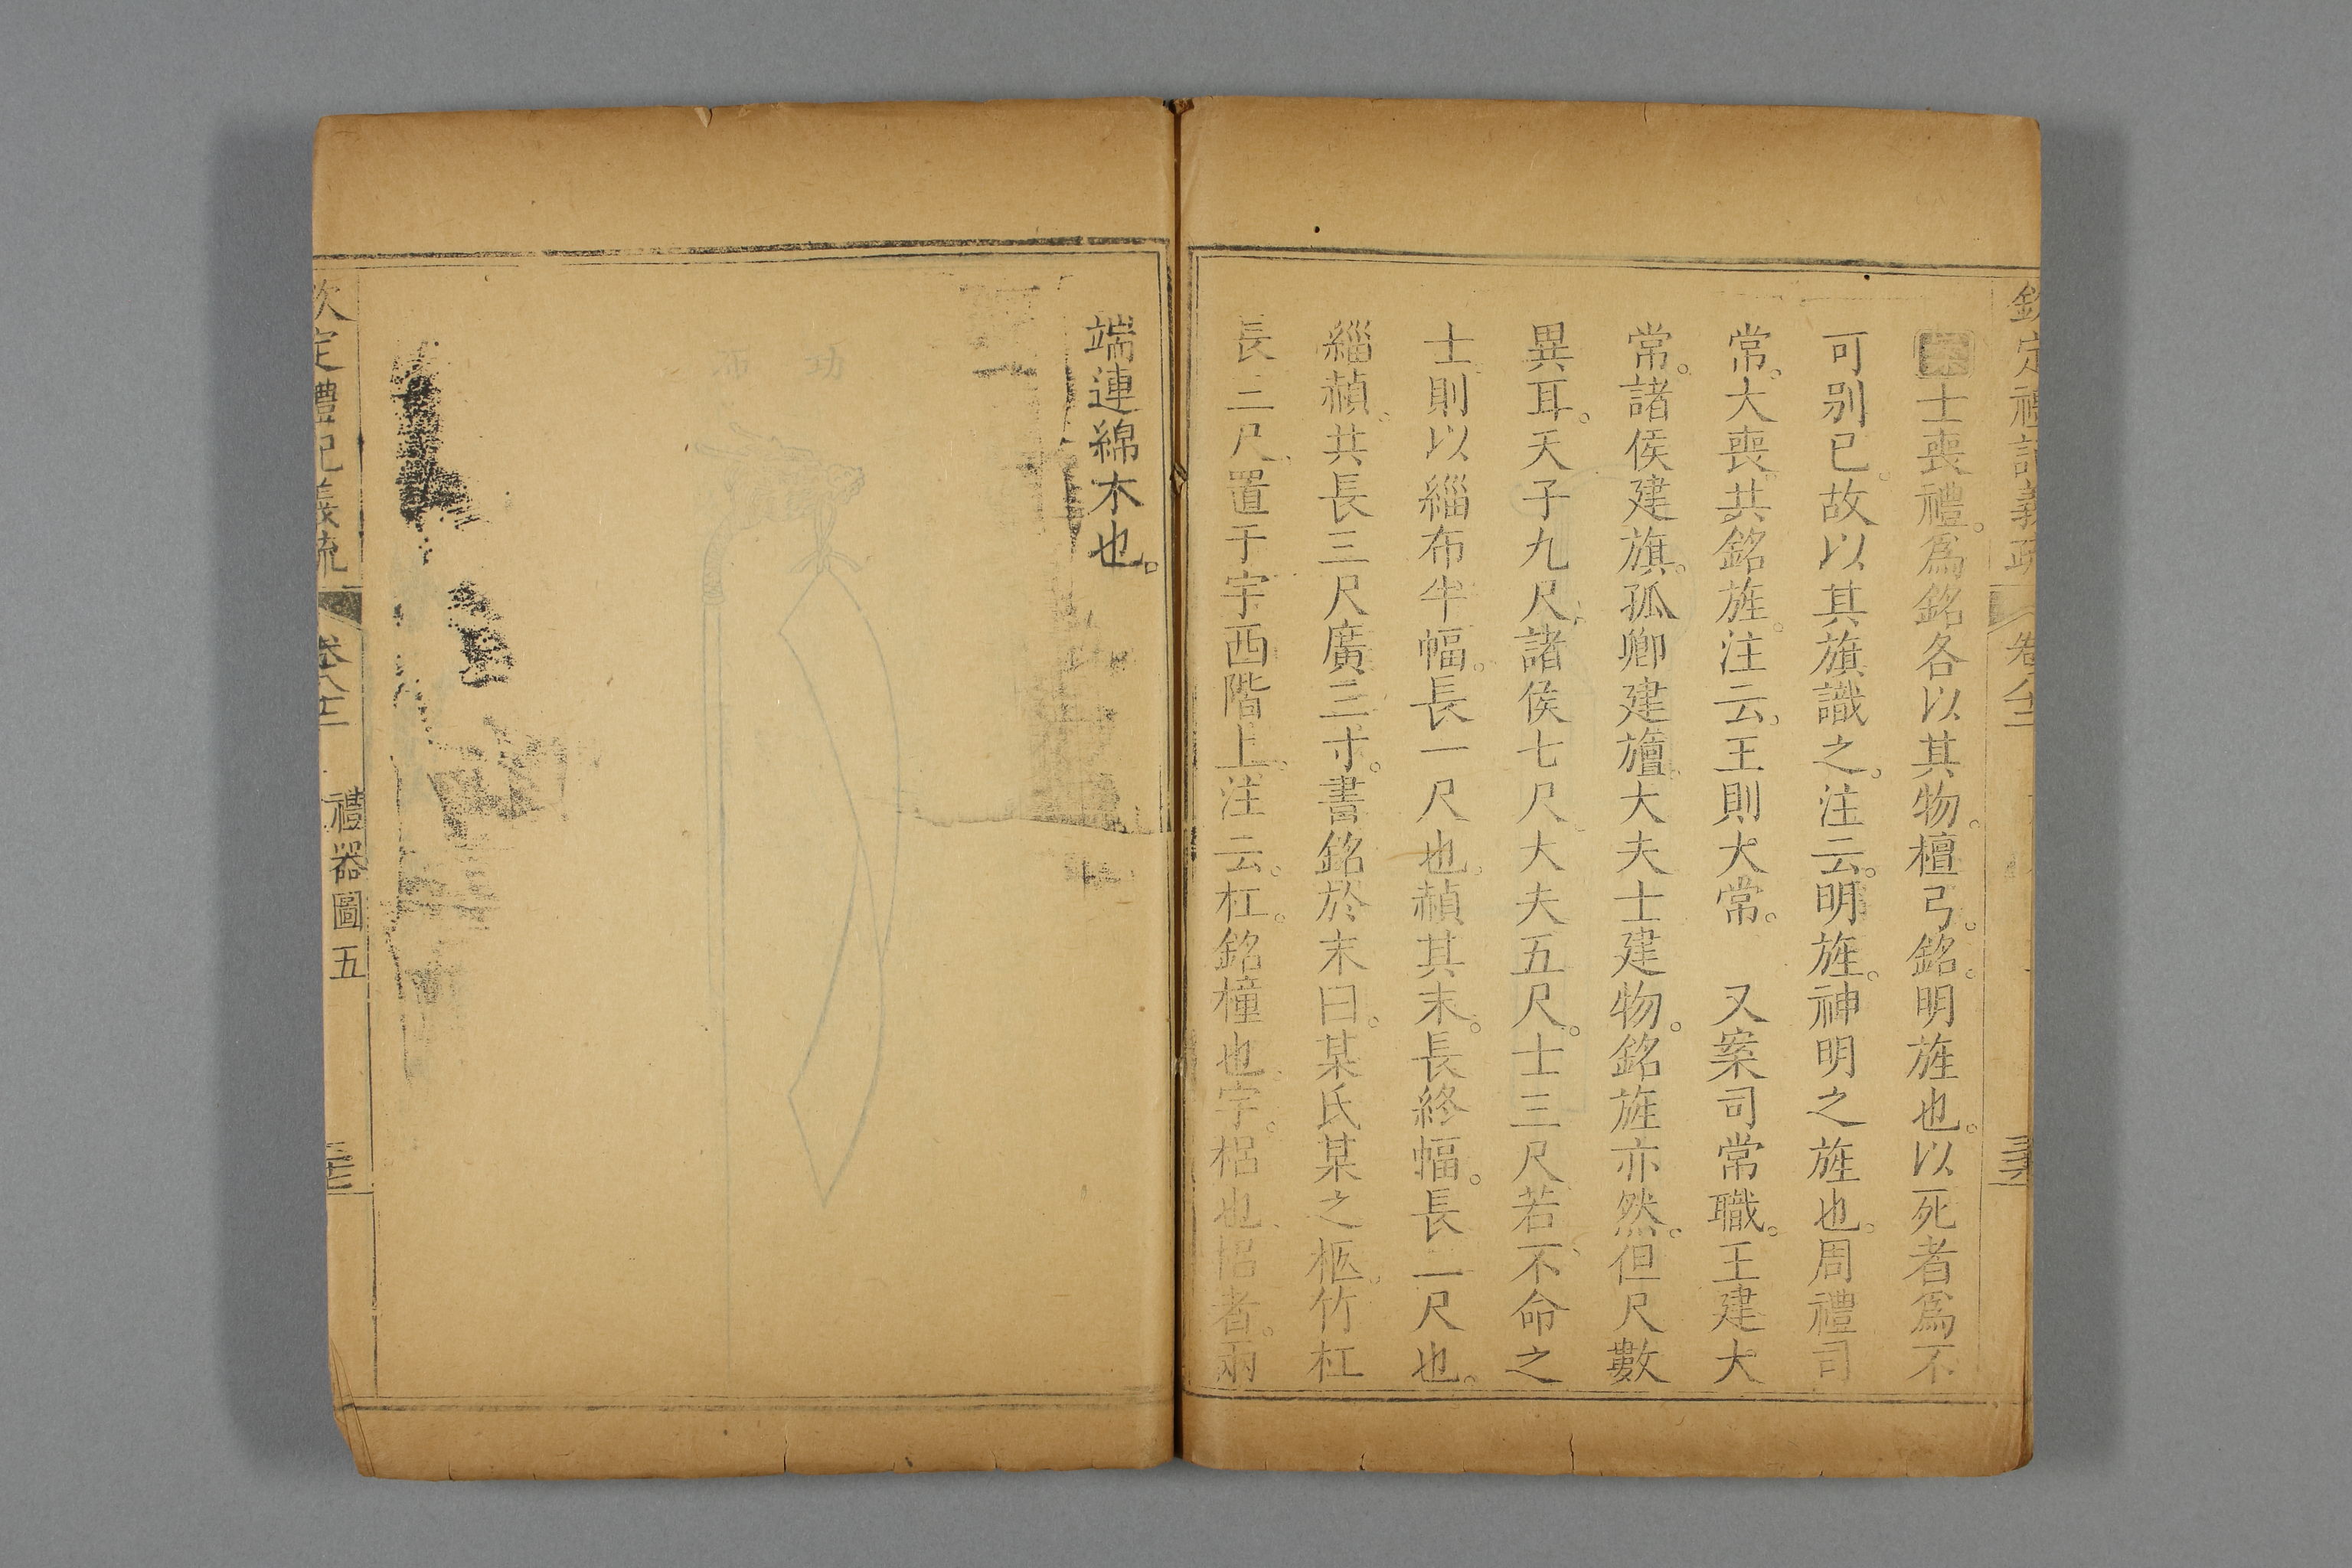 欽定禮記義疏 卷八十二
士喪禮。爲銘各以其物。檀弓。銘。明旌也。以死者爲不
可别已。故以其旗識之。注云。明旌。神明之旌也。周禮司
常。大喪。共銘旌。注云。王則大常。 又案司常職。王建大
常。諸侯建旗。孤卿建旜。大夫士建物。銘旌亦然。但尺數
異耳。天子九尺。諸侯七尺。大夫五尺。士三尺。若不命之
士。則以緇布半幅。長一尺也。赬其末。長終幅。長二尺也。
緇赬。共長三尺。廣三寸。書銘於末曰。某氏某之柩。竹杠
長三尺。置于宇西階上。注云。杠。銘橦也。宇。梠也。梠者。兩
端連綿木也。
功布
欽定禮記義疏 卷八十二 禮器圖五